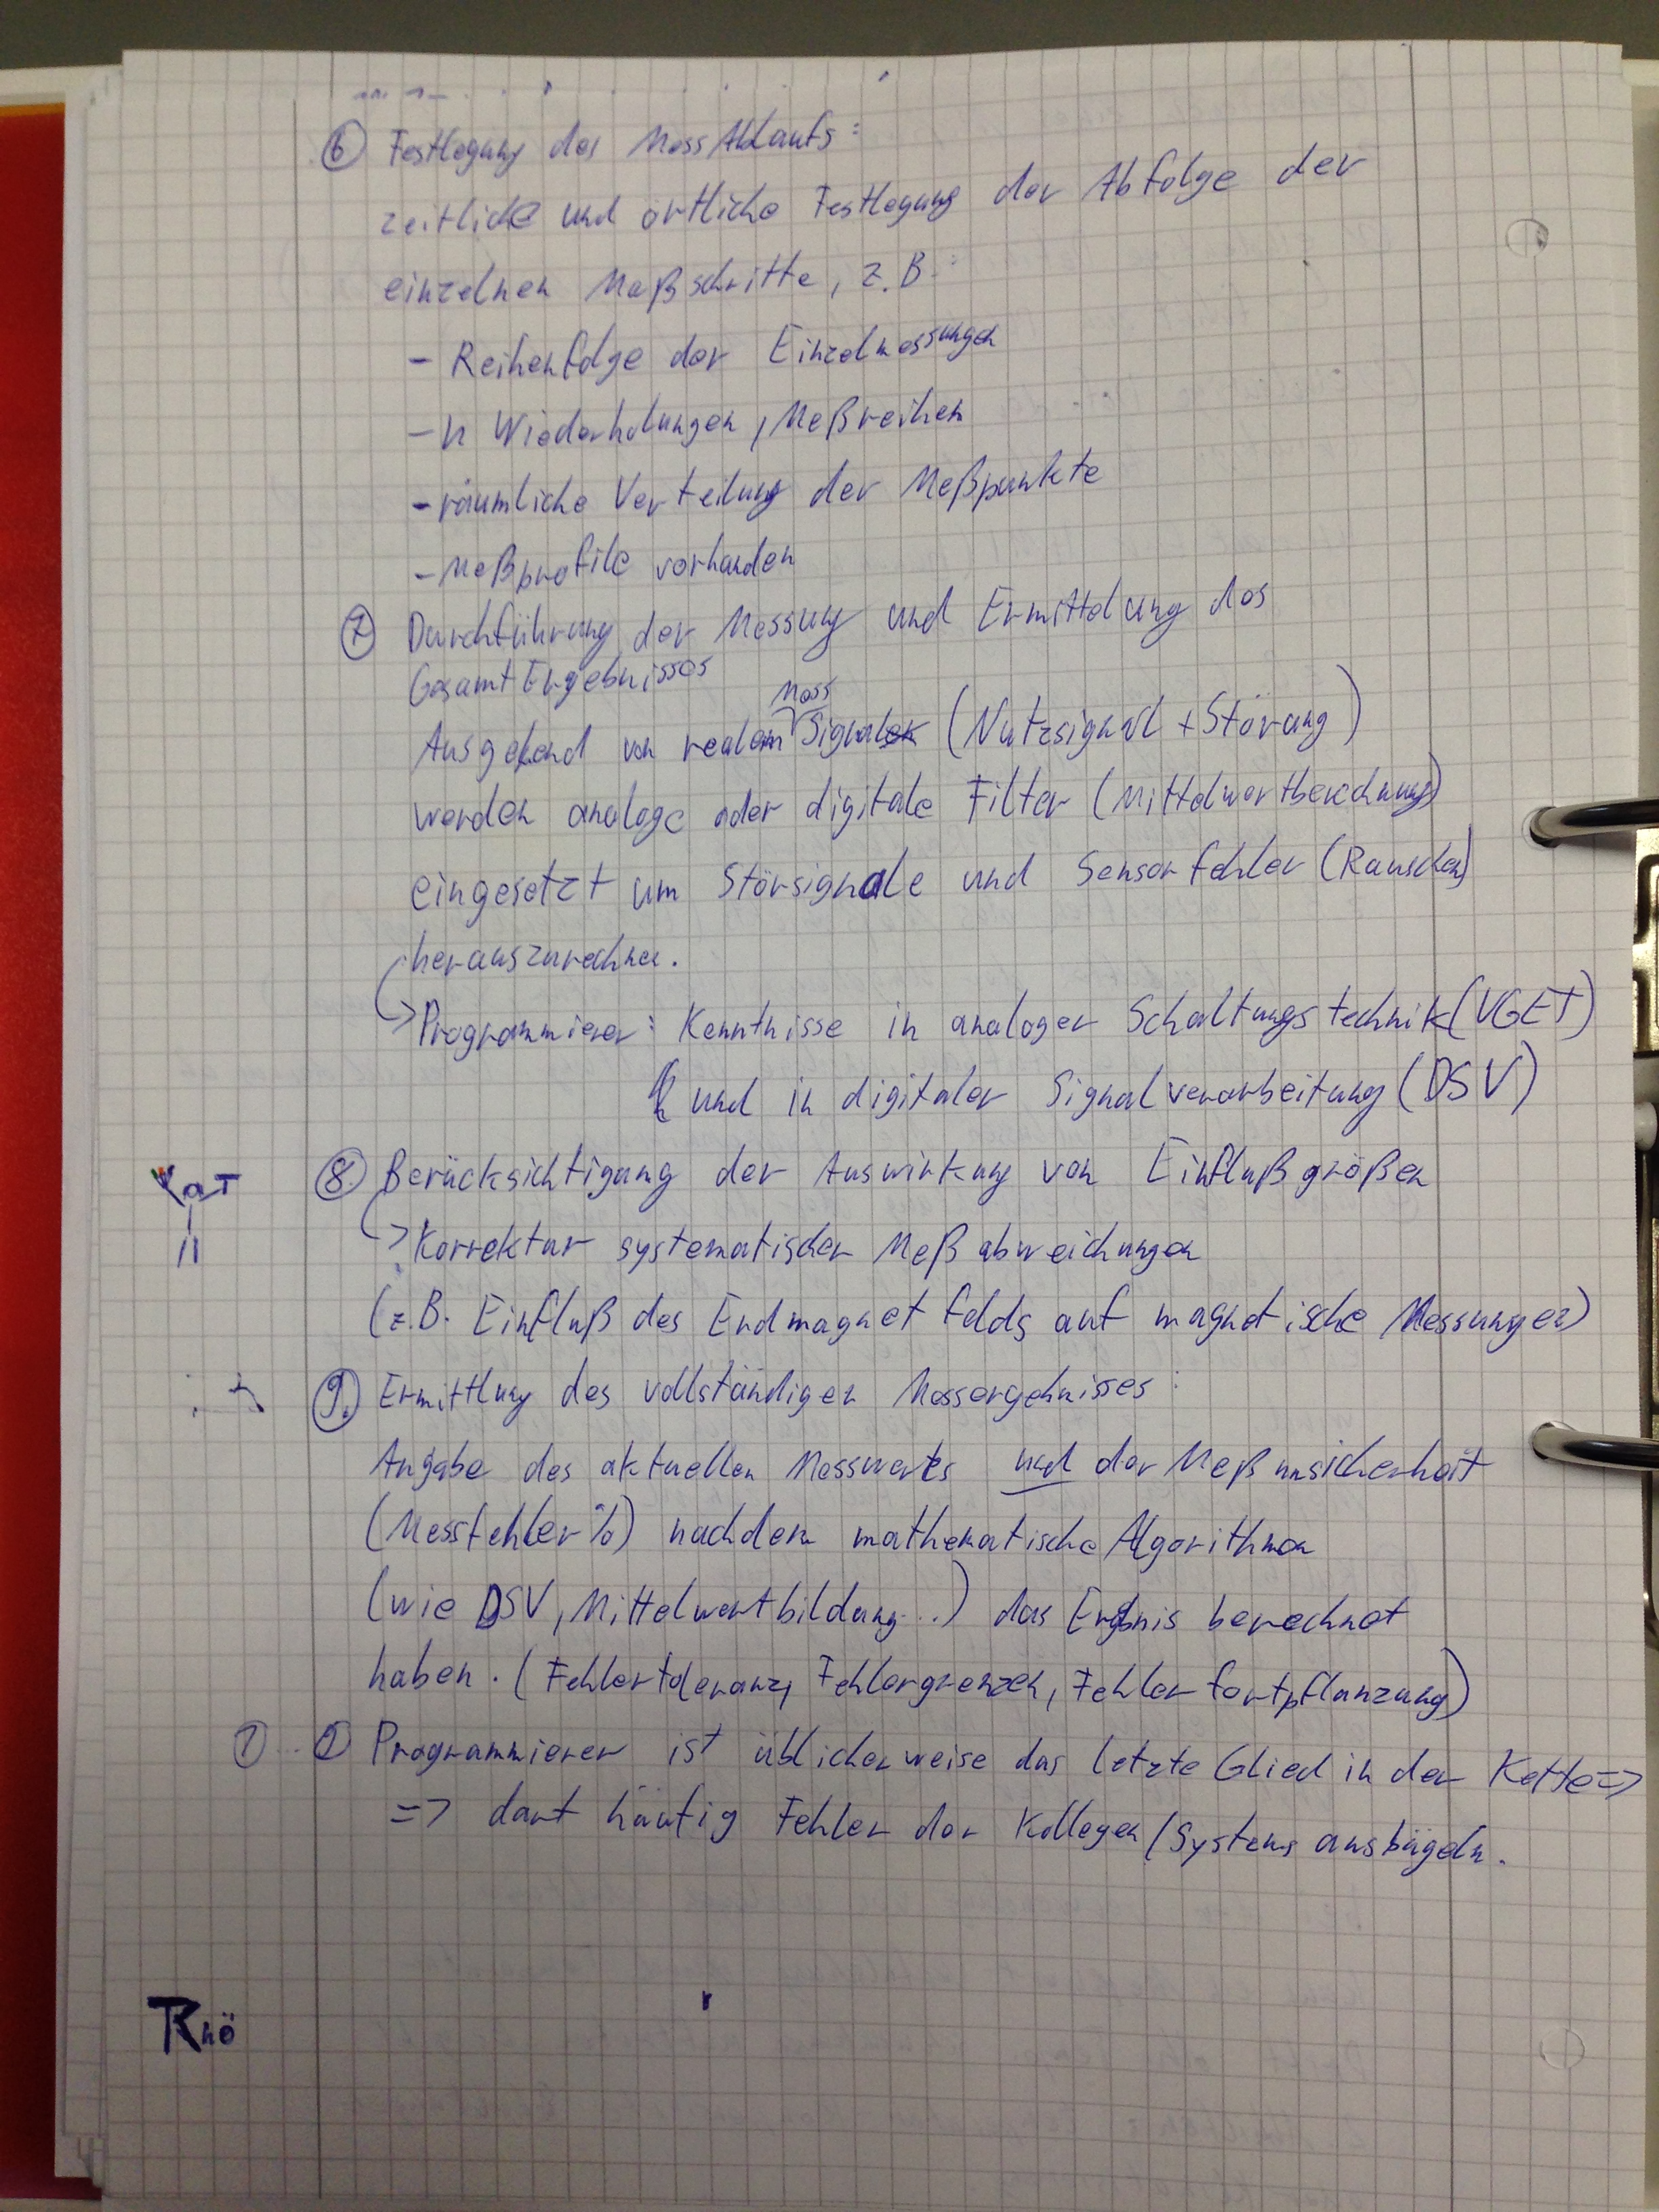 ⑥ Festlegung des MessAblaufs:
zeitliche und örtliche Festlegung der Abfolge der
einzelnen Meßschritte, z.B.
- Reihenfolge der Einzelmessungen
- n Wiederholungen, Meßreihen
- räumliche Verteilung der Meßpunkte
- Meßprofile vorhanden
⑦ Durchführung der Messung und Ermittelung des
GesamtErgebnisses
Mess
Ausgehend von realem Signal (Nutzsignal + Störung)
werden analoge oder digitale Filter (Mittelwertberechnung)
eingesetzt um Störsignale und Sensorfehler (Rauschen)
herauszurechnen.
-> Programmierer: Kenntnisse in analoger Schaltungstechnik (VGET)
und in digitaler Signalverarbeitung (DSV)
⑧ Berücksichtigung der Auswirkung von Einflußgrößen
-> Korrektur systematischer Meßabweichungen
(z.B. Einfluß des Erdmagnetfelds auf magnetische Messungen)
⑨ Ermittlung des vollständigen Messergebnisses:
Angabe des aktuellen Messwerts und der Meßunsicherheit
(Messfehler %) nachdem mathematische Algorithmen
(wie DSV, Mittelwertbildung...) das Ergbnis berechnet
haben. (Fehlertoleranz, Fehlergrenzen, Fehlerfortpflanzung)
Programmierer ist üblicherweise das letzte Glied in der Kette =>
=> darf häufig Fehler der Kollegen/Systems ausbügeln.